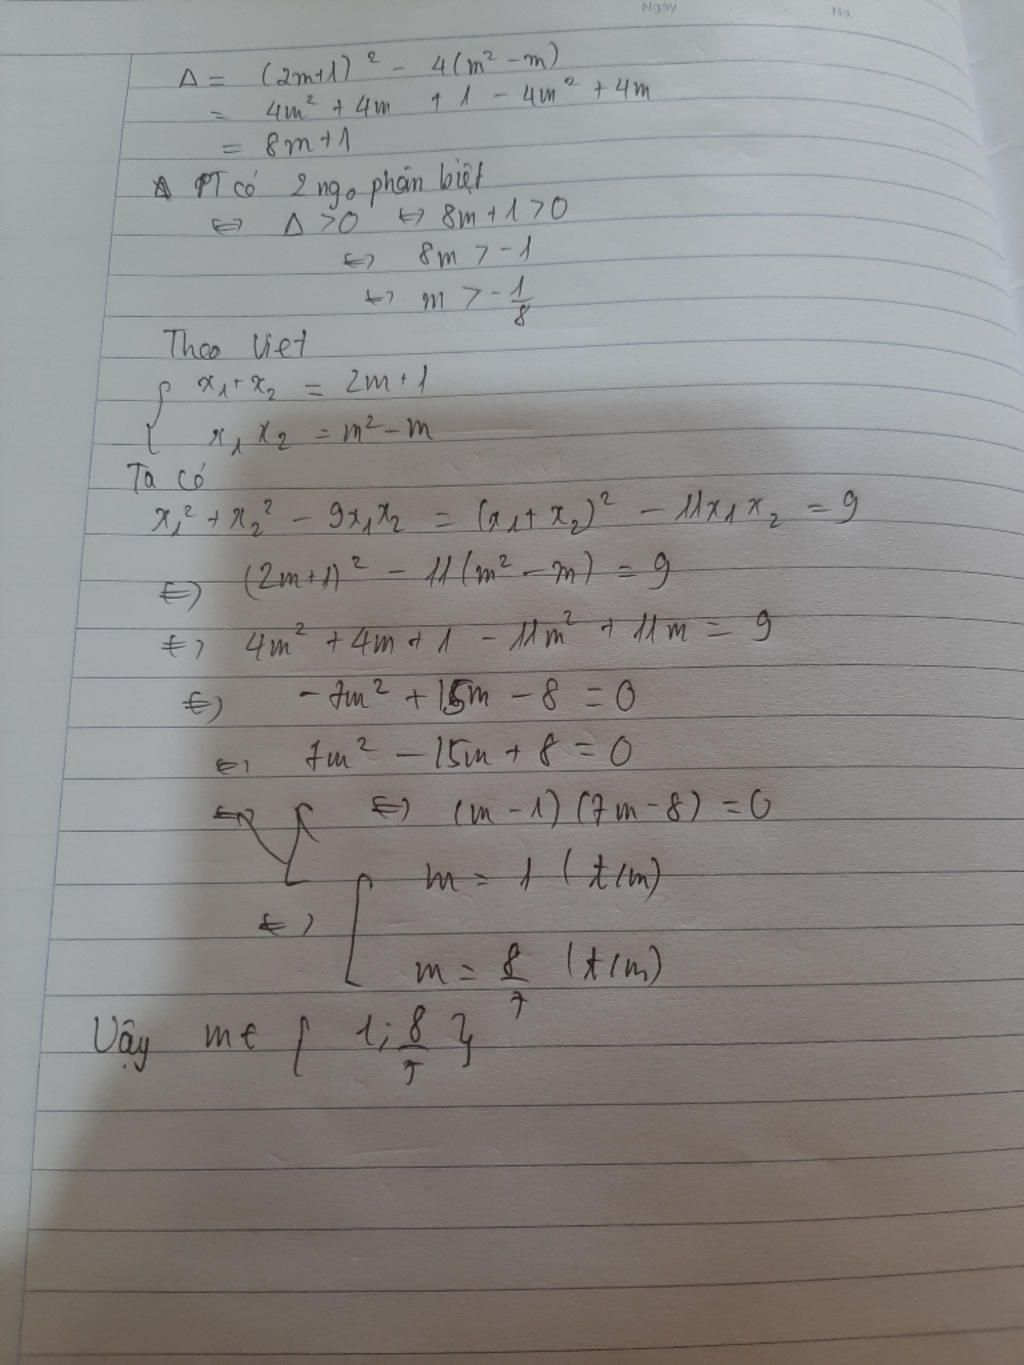 Ngày No.
Δ = (2m+1)² - 4(m² - m)
= 4m² + 4m + 1 - 4m² + 4m
= 8m+1
PT có 2 ngo phân biệt
⇔ Δ > 0 ⇔ 8m + 1 > 0
⇔ 8m > -1
⇔ m > -1/8
Theo Viet
{ x₁ + x₂ = 2m + 1
x₁ x₂ = m² - m
Ta có
x₁² + x₂² - 9x₁x₂ = (x₁ + x₂)² - 11x₁x₂ = 9
⇔ (2m+1)² - 11(m² - m) = 9
⇔ 4m² + 4m + 1 - 11m² + 11m = 9
⇔ -7m² + 15m - 8 = 0
⇔ 7m² - 15m + 8 = 0
⇔ (m - 1)(7m - 8) = 0
⇔ [ m = 1 (t/m)
m = 8/7 (t/m)
Vậy m ∈ { 1; 8/7 }